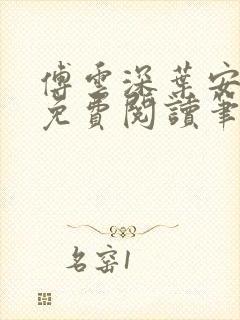 傅雲深葉安
免費閱讀筆
名窑1